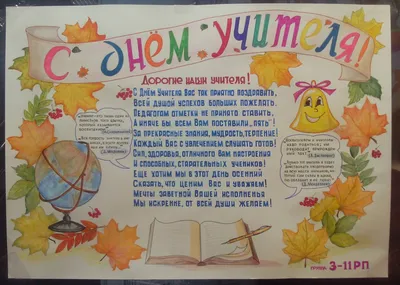 С днём учителя!
Дорогие наши учителя!
С Днём Учителя Вас так приятно поздравить,
Всей душой успехов больших пожелать.
Педагогам отметки не принято ставить,
А иначе бы всем Вам поставили „пять“!
За прекрасные знания, мудрость, терпение!
Каждый Вас с увлечением слушать готов!
Сил, здоровья, отличного Вам настроения
И способных, старательных учеников!
Еще хотим мы в этот день осенний
Сказать, что ценим Вас и уважаем!
Мечты заветной Вашей исполненья
Мы искренне, от всей души желаем!
группа 3-11РП